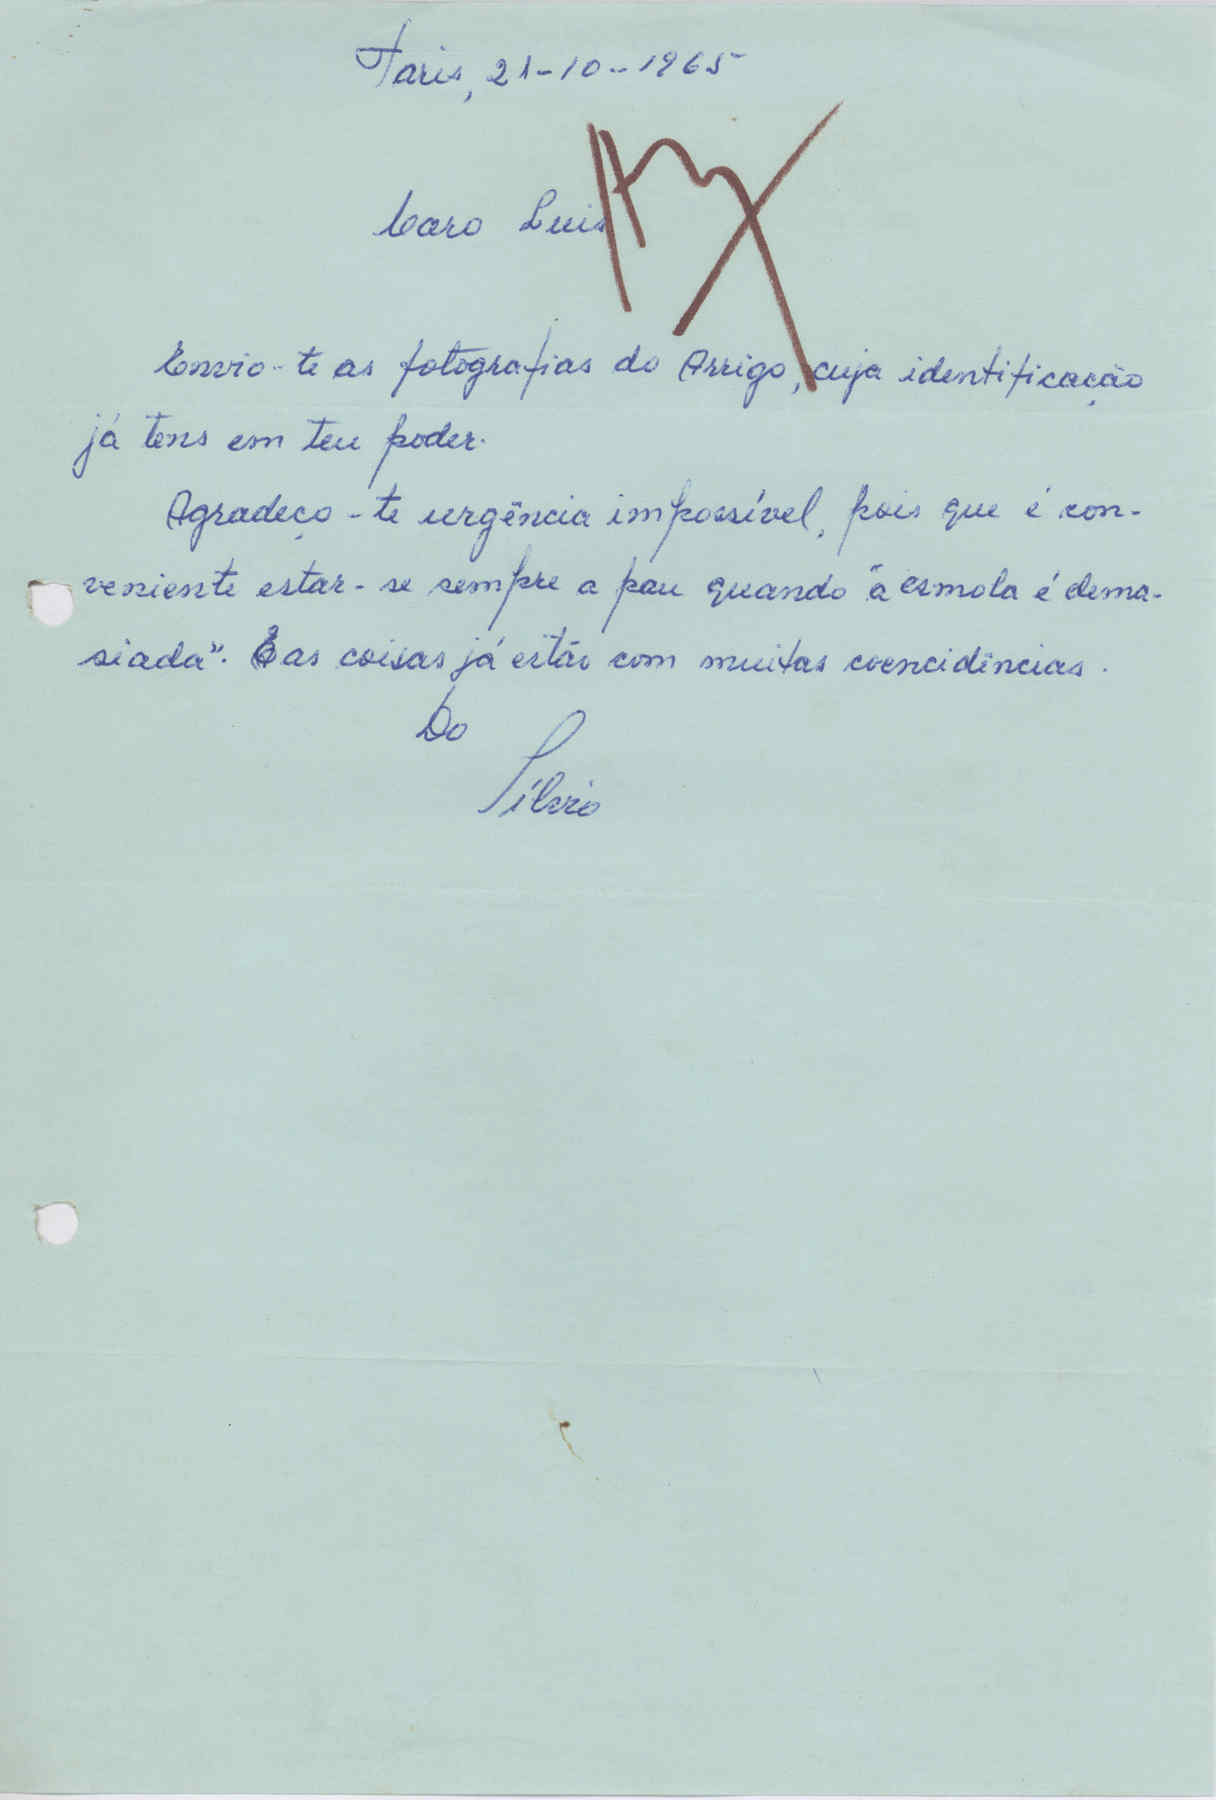 Paris, 21-10-1965
Caro Luis
Envio-te as fotografias do Arrigo, cuja identificação
já tens em teu poder.
Agradeço-te urgência impossível, pois que é con-
veniente estar-se sempre a pau quando "a esmola é dema-
siada". E as coisas já estão com muitas coencidências.
Do
Sílvio